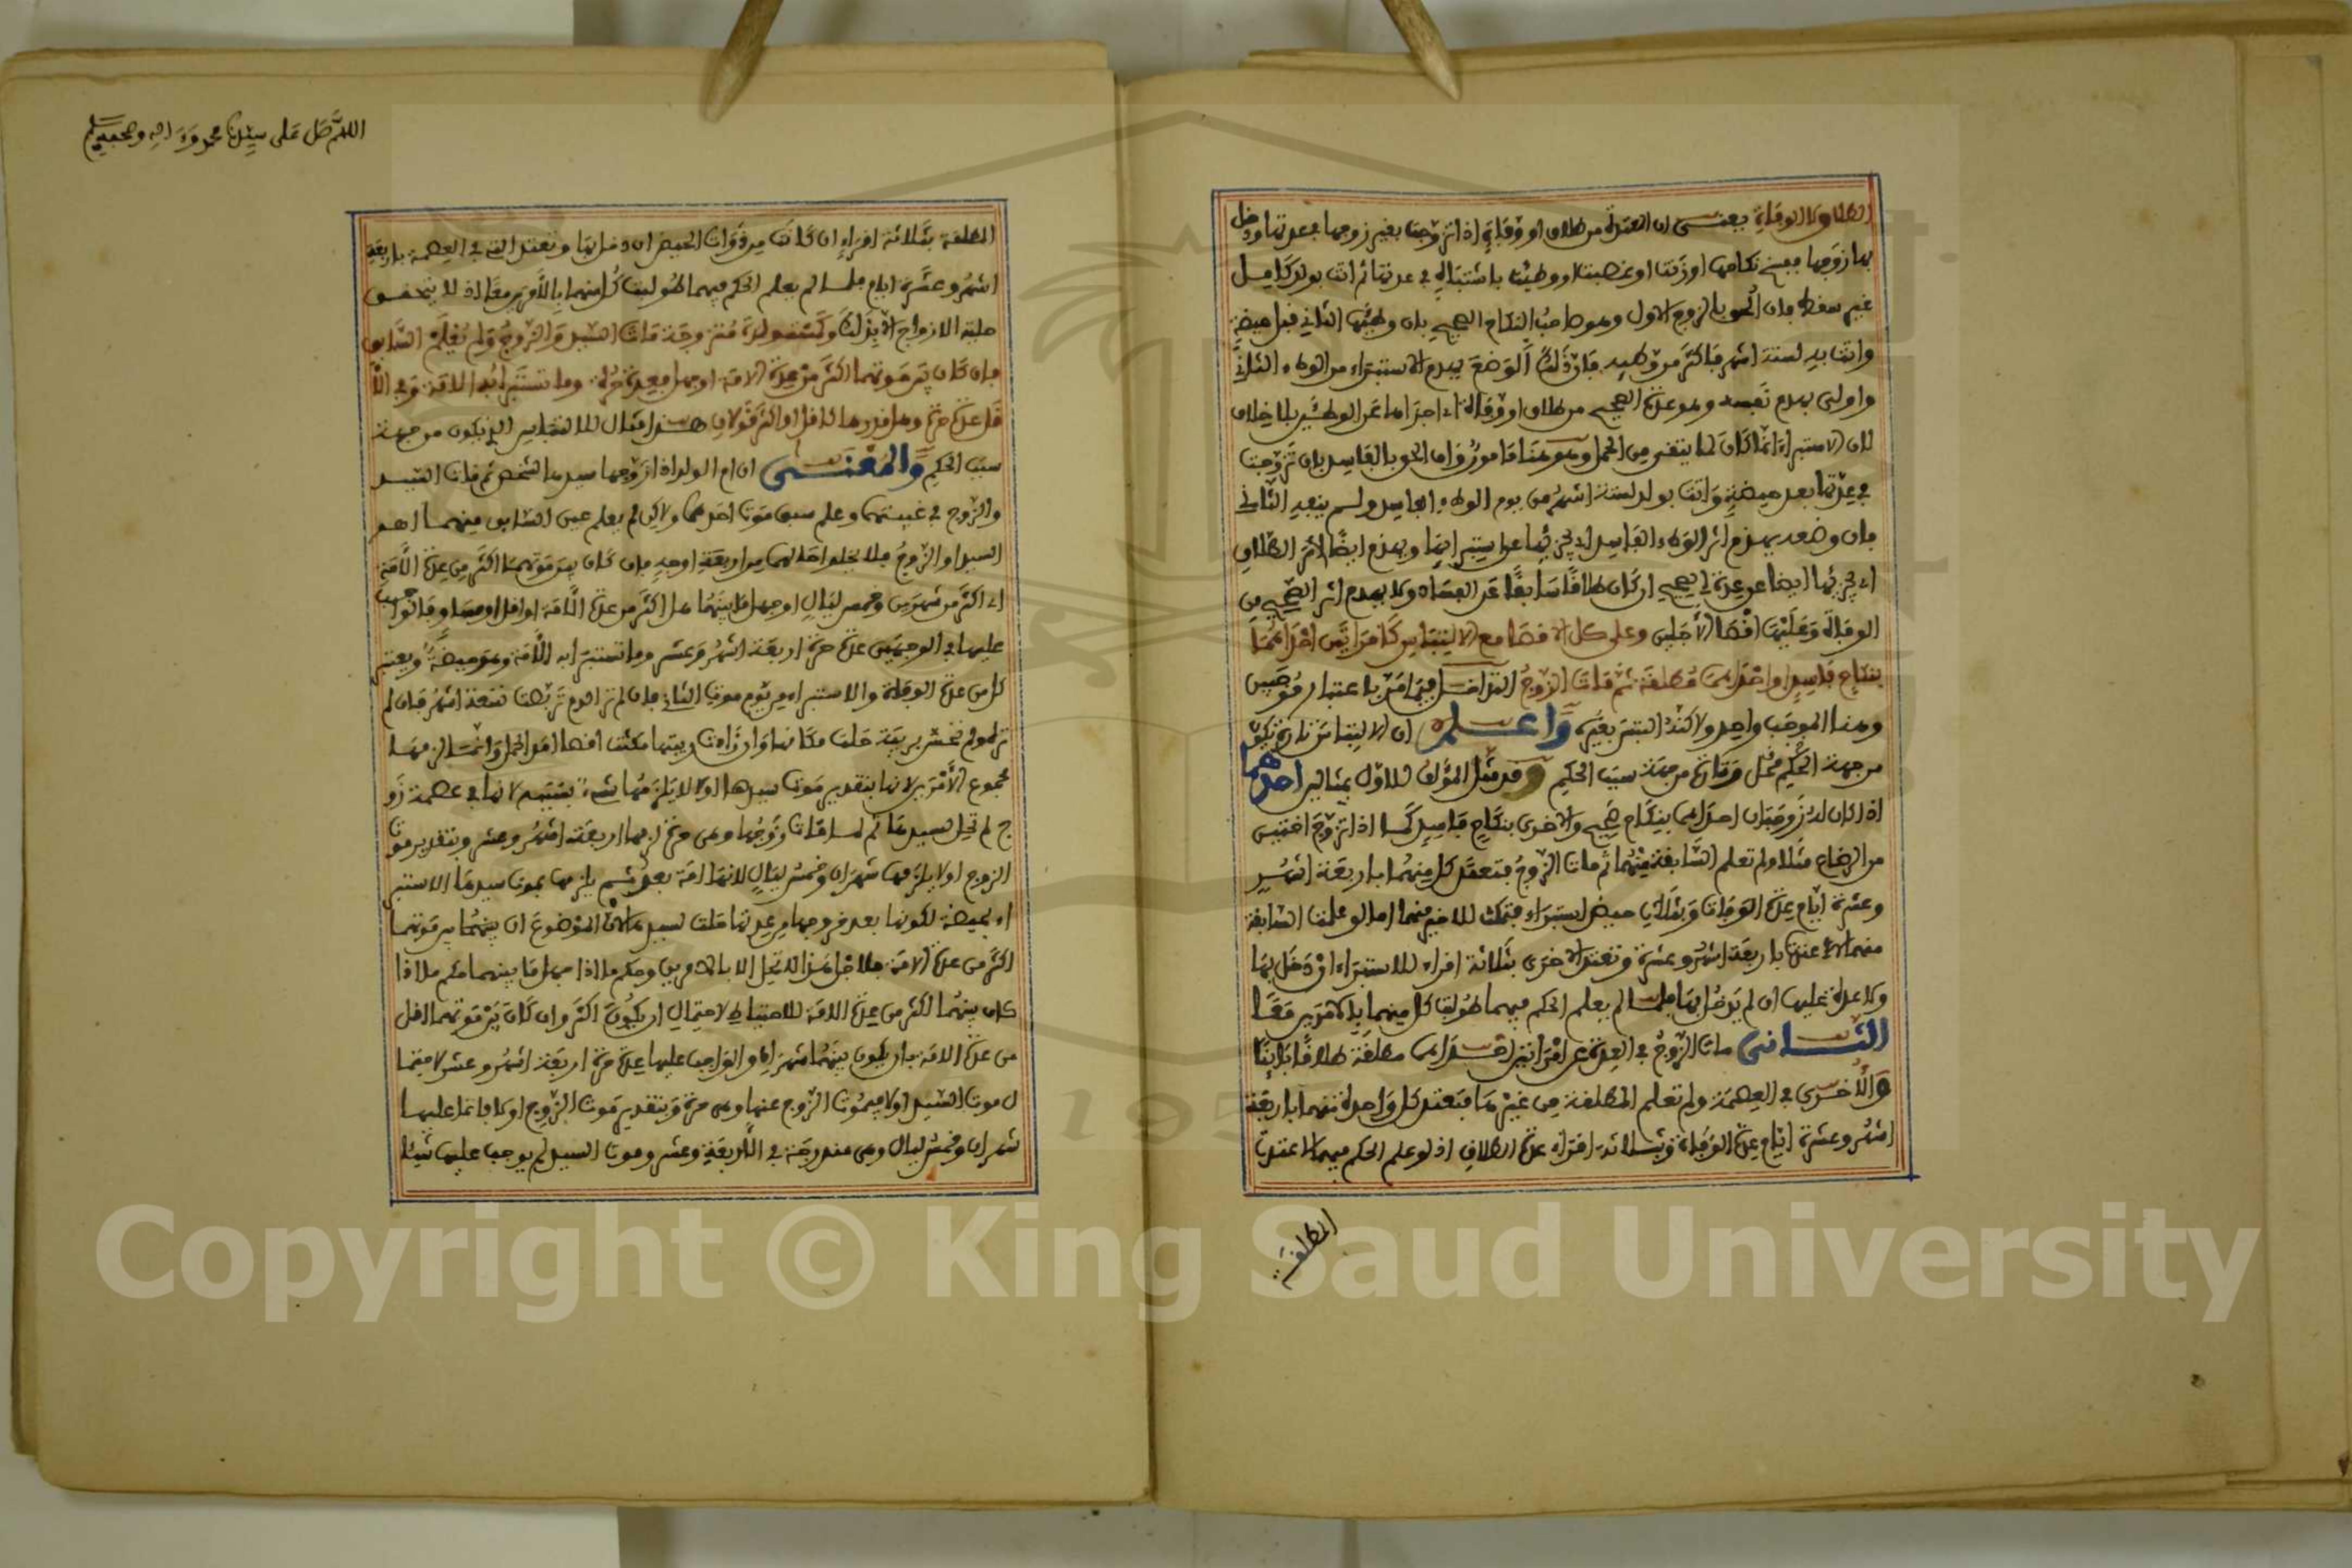 الطلاق لا الوفاة يعني ان المعتدة من طلاق او وفاة اذا تزوجت بغير زوجها في عدتها ودخل
بها زوجها ففسخ نكاحها او زنت او غصبت او وطئت باشتباه في عدتها ثم اتت بولد كامل
غير سقط فان ألحق بالزوج الاول وهو صاحب النكاح الصحيح بان وطئها الثاني قبل حيضة
واتت به لستة اشهر فاكثر من وطئه فان ذلك الوضع يهدم الاستبراء من الوطء الثاني
واولى يهدم نفسه وهو عدة الصحيح من طلاق او وفاة اي اجزاها عن الوطئين بلا خلاف
لان الاستبراء انما كان لما يتقى من الحمل وهو هنا مامون وان الحق بالفاسد بان تزوجت
في عدتها بعد حيضة واتت بولد لستة اشهر من يوم الوطء الفاسد ولم ينفه الثاني
فان وضعه يهدم اثر الوطء الفاسد اي يجزئها عن استبرائها ويهدم ايضا اثر الطلاق
اي يجزئها ايضا عن عدة الصحيح ان كان طلاقا سابقا عن الفساد ولا يهدم اثر الصحيح من
الوفاة وعليها اقصا الاجلين وعلى كل الاقصا مع الالتباس كامراتين احداهما
بنكاح فاسد او احداهما مطلقة ثم مات الزوج التداخل فيما مر باعتبار موجبين
وهنا الموجب واحد ولاكنه التبس بغيره واعلم ان الالتباس تارة يكون
من جهة الحكم محل وتارة من جهة سبب الحكم وقد مثل المؤلف للاول بمثالين احدهما
اذا كان له زوجتان احداهما بنكاح صحيح والاخرى بنكاح فاسد كما اذا تزوج اختين
من الرضاع مثلا ولم تعلم السابقة منهما ثم مات الزوج فتعتد كل منهما باربعة اشهر
وعشرة ايام عدة الوفاة وبثلاث حيض استبراء فتمكث للاخير منهما اما لو علمت السابقة
منهما لاعتدت باربعة اشهر وعشرة وتعتد الاخرى بثلاثة اقراء للاستبراء ان دخل بها
ولا عدة عليها ان لم يدخل بها فلما لم يعلم الحكم فيهما طولبت كل منهما بالامرين معا
الثاني مات الزوج في العدة عن امراتين احداهما مطلقة طلاقا بائنا
والاخرى في العصمة ولم تعلم المطلقة من غيرها فتعتد كل واحدة منهما باربعة
اشهر وعشرة ايام عدة الوفاة وبثلاثة اقراء عدة الطلاق اذ لو علم الحكم فيهما لاعتدت
المطلقة
اللهم صل على سيدنا محمد وءاله وصحبه وسلم
المطلقة بثلاثة اقراء ان كانت من ذوات الحيض ان دخل بها وتعتد التي في العصمة باربعة
اشهر وعشرة ايام فلما لم يعلم الحكم فيهما طولبت كل منهما بالامرين معا اذ لا يتحقق
حلية الازواج الا بذلك وكمستولدة متزوجة مات السيد والزوج ولم يعلم السابق
فان كان بين موتهما اكثر من عدة الامة او جهل فعدة حرة وما تستبرا به الامة وفي الا
قل عدة حرة وهل قدرها كاقل او اكثر قولان هذا مثال للالتباس الذي يكون من جهة
سبب الحكم والمعنى ان ام الولد اذا زوجها سيدها لشخص ثم مات السيد
والزوج في غيبتهما وعلم سبق موت احدهما ولاكن لم يعلم عين السابق منهما اهو
السيد او الزوج فلا يخلوا حالهما من اربعة اوجه فان كان بين موتهما اكثر من عدة الامة
اي اكثر من شهرين وخمس ليال او جهل ما بينهما هل اكثر من عدة الامة او اقل او مساو فالواجب
عليها في الوجهين عدة حرة اربعة اشهر وعشر وما تستبرا به الامة وهو حيضة ويعتبر
كل من عدة الوفاة والاستبراء من يوم موت الثاني فان لم تر الدم تربصت تسعة اشهر فان لم
تزل ولم تحس بريبة حلت مكانها وان زادت ريبتها مكثت اقصا امد الحمل وانما لزمها
مجموع الامرين لانها بتقدير موت سيدها اولا لا يلزمها شيء بسببه لانها في عصمة زو
ج لم تحل لسيدها ثم لما مات زوجها وهي حرة لزمها اربعة اشهر وعشر وبتقدير موت
الزوج اولا يلزمها شهران وخمس ليال لانها امة بعد ثم يلزمها بموت سيدها الاستبر
اء بحيضة لكونها بعد خروجها من عدتها حلت لسيدها لان الموضوع ان بينهما بين موتهما
اكثر من عدة الامة فلاجل هذا لا تحل الا بالامرين وحكم ما اذا جهل ما بينهما حكم ما اذا
كان بينهما اكثر من عدة الامة للاحتياط لاحتمال ان يكون اكثر وان كان بين موتهما اقل
من عدة الامة بان يكون بينهما شهران فالواجب عليها عدة حرة اربعة اشهر وعشر لاحتما
ل موت السيد اولا فيموت الزوج عنها وهي حرة وبتقدير موت الزوج اولا فانما عليها
شهران وخمس ليال وهي مندرجة في الاربعة وعشر وموت السيد لم يوجب عليها شيئا
Copyright © King Saud University